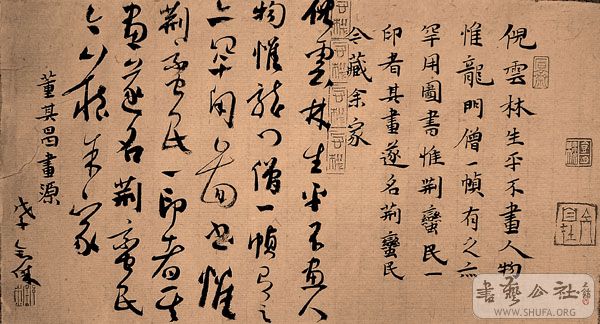 倪雲林生平不畫人物
惟龍門僧一幀有之亦
罕用圖書惟荊蠻民一
印者其畫遂名荊蠻民
今藏余家
倪雲林生平不畫人
物惟龍門僧一幀有之
亦罕用圖書惟
荊蠻民一印者其
畫遂名荊蠻民
今藏余家
董其昌畫源
書藝公社
WWW.SHUFA.ORG